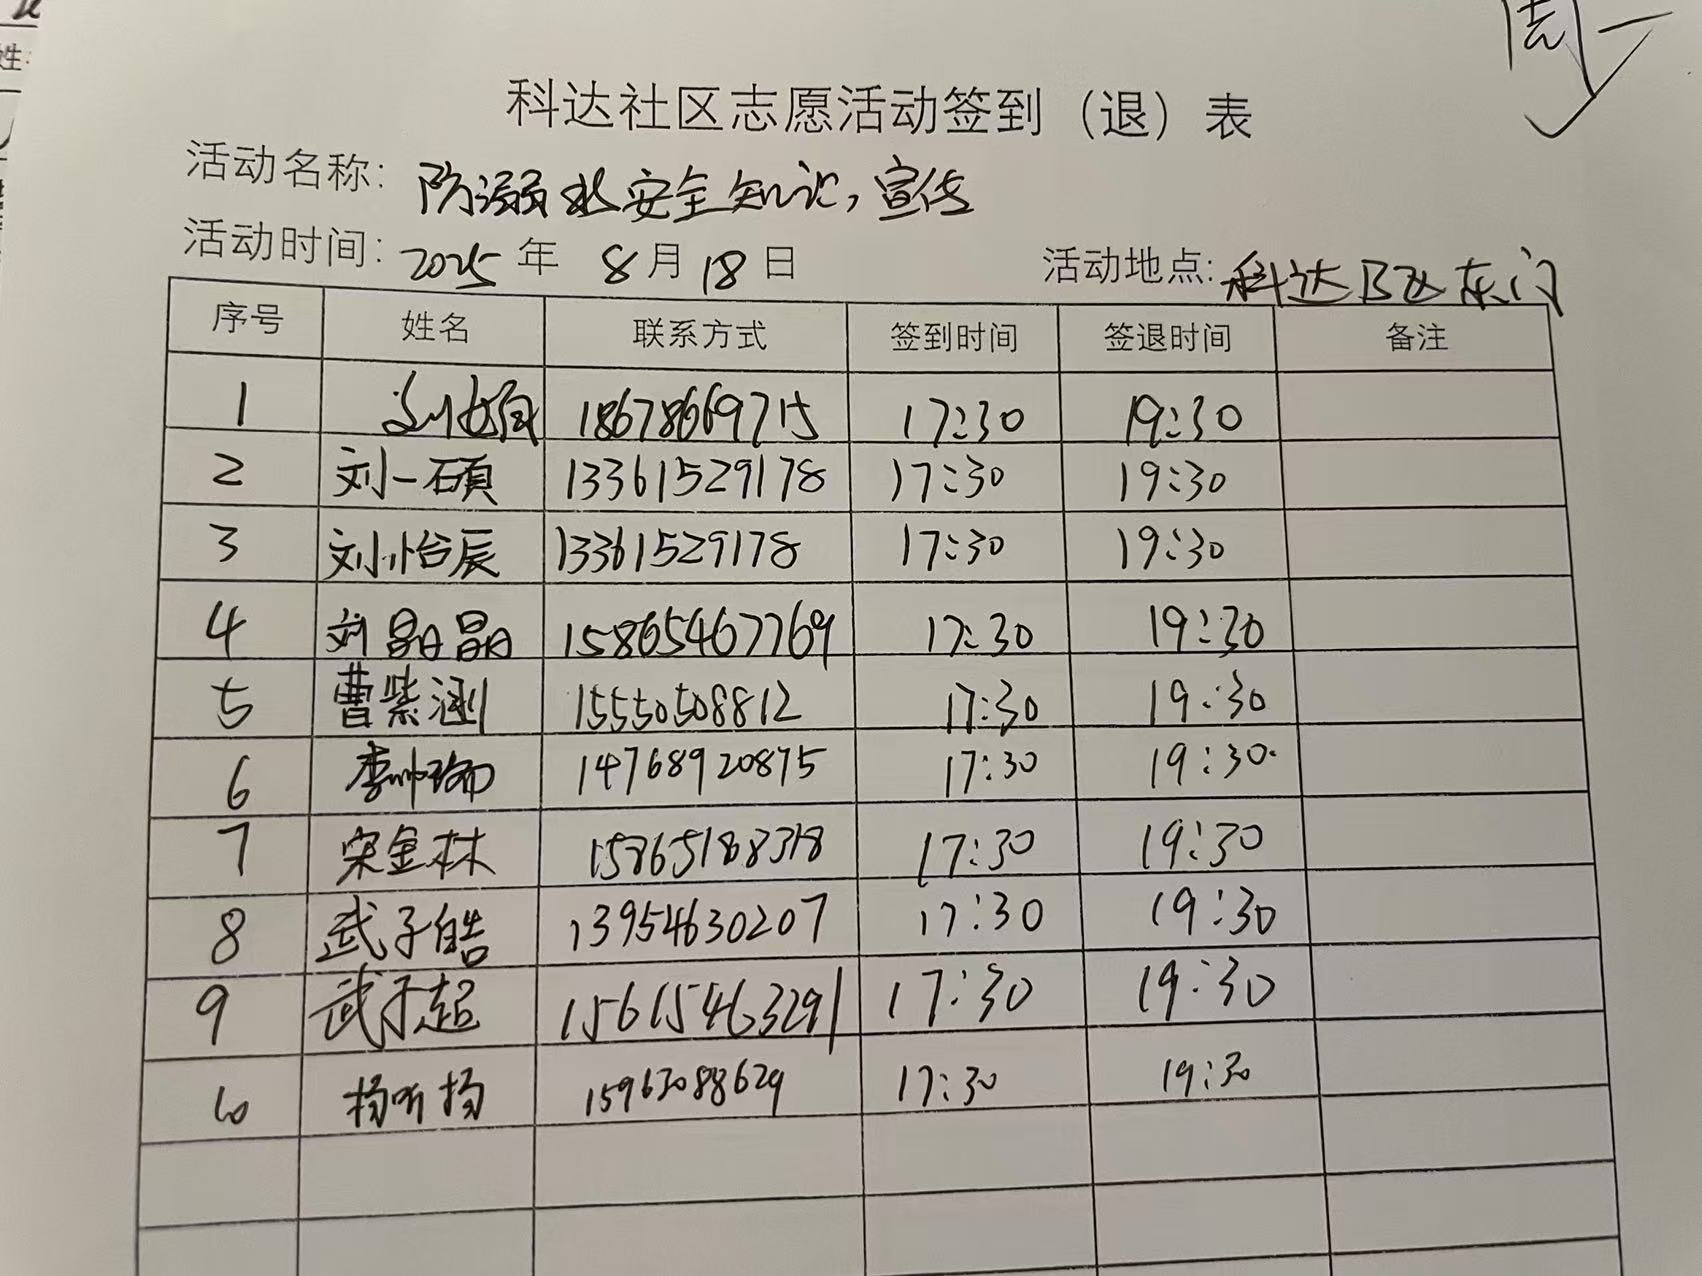 周一
科达社区志愿活动签到（退）表
活动名称: 防溺水安全知识,宣传
活动时间: 2025年 8月18日 活动地点: 科达B区东门
序号 姓名 联系方式 签到时间 签退时间 备注
1 18678669715 17:30 19:30
2 刘一硕 13361529178 17:30 19:30
3 刘怡辰 13361529178 17:30 19:30
4 刘晶晶 15865467769 17:30 19:30
5 曹紫涵 15550508812 17:30 19:30
6 李帅瑜 14768920875 17:30 19:30
7 宋金林 15865188318 17:30 19:30
8 武子皓 13954630207 17:30 19:30
9 武子超 15615463291 17:30 19:30
10 杨昕扬 15963088629 17:30 19:30